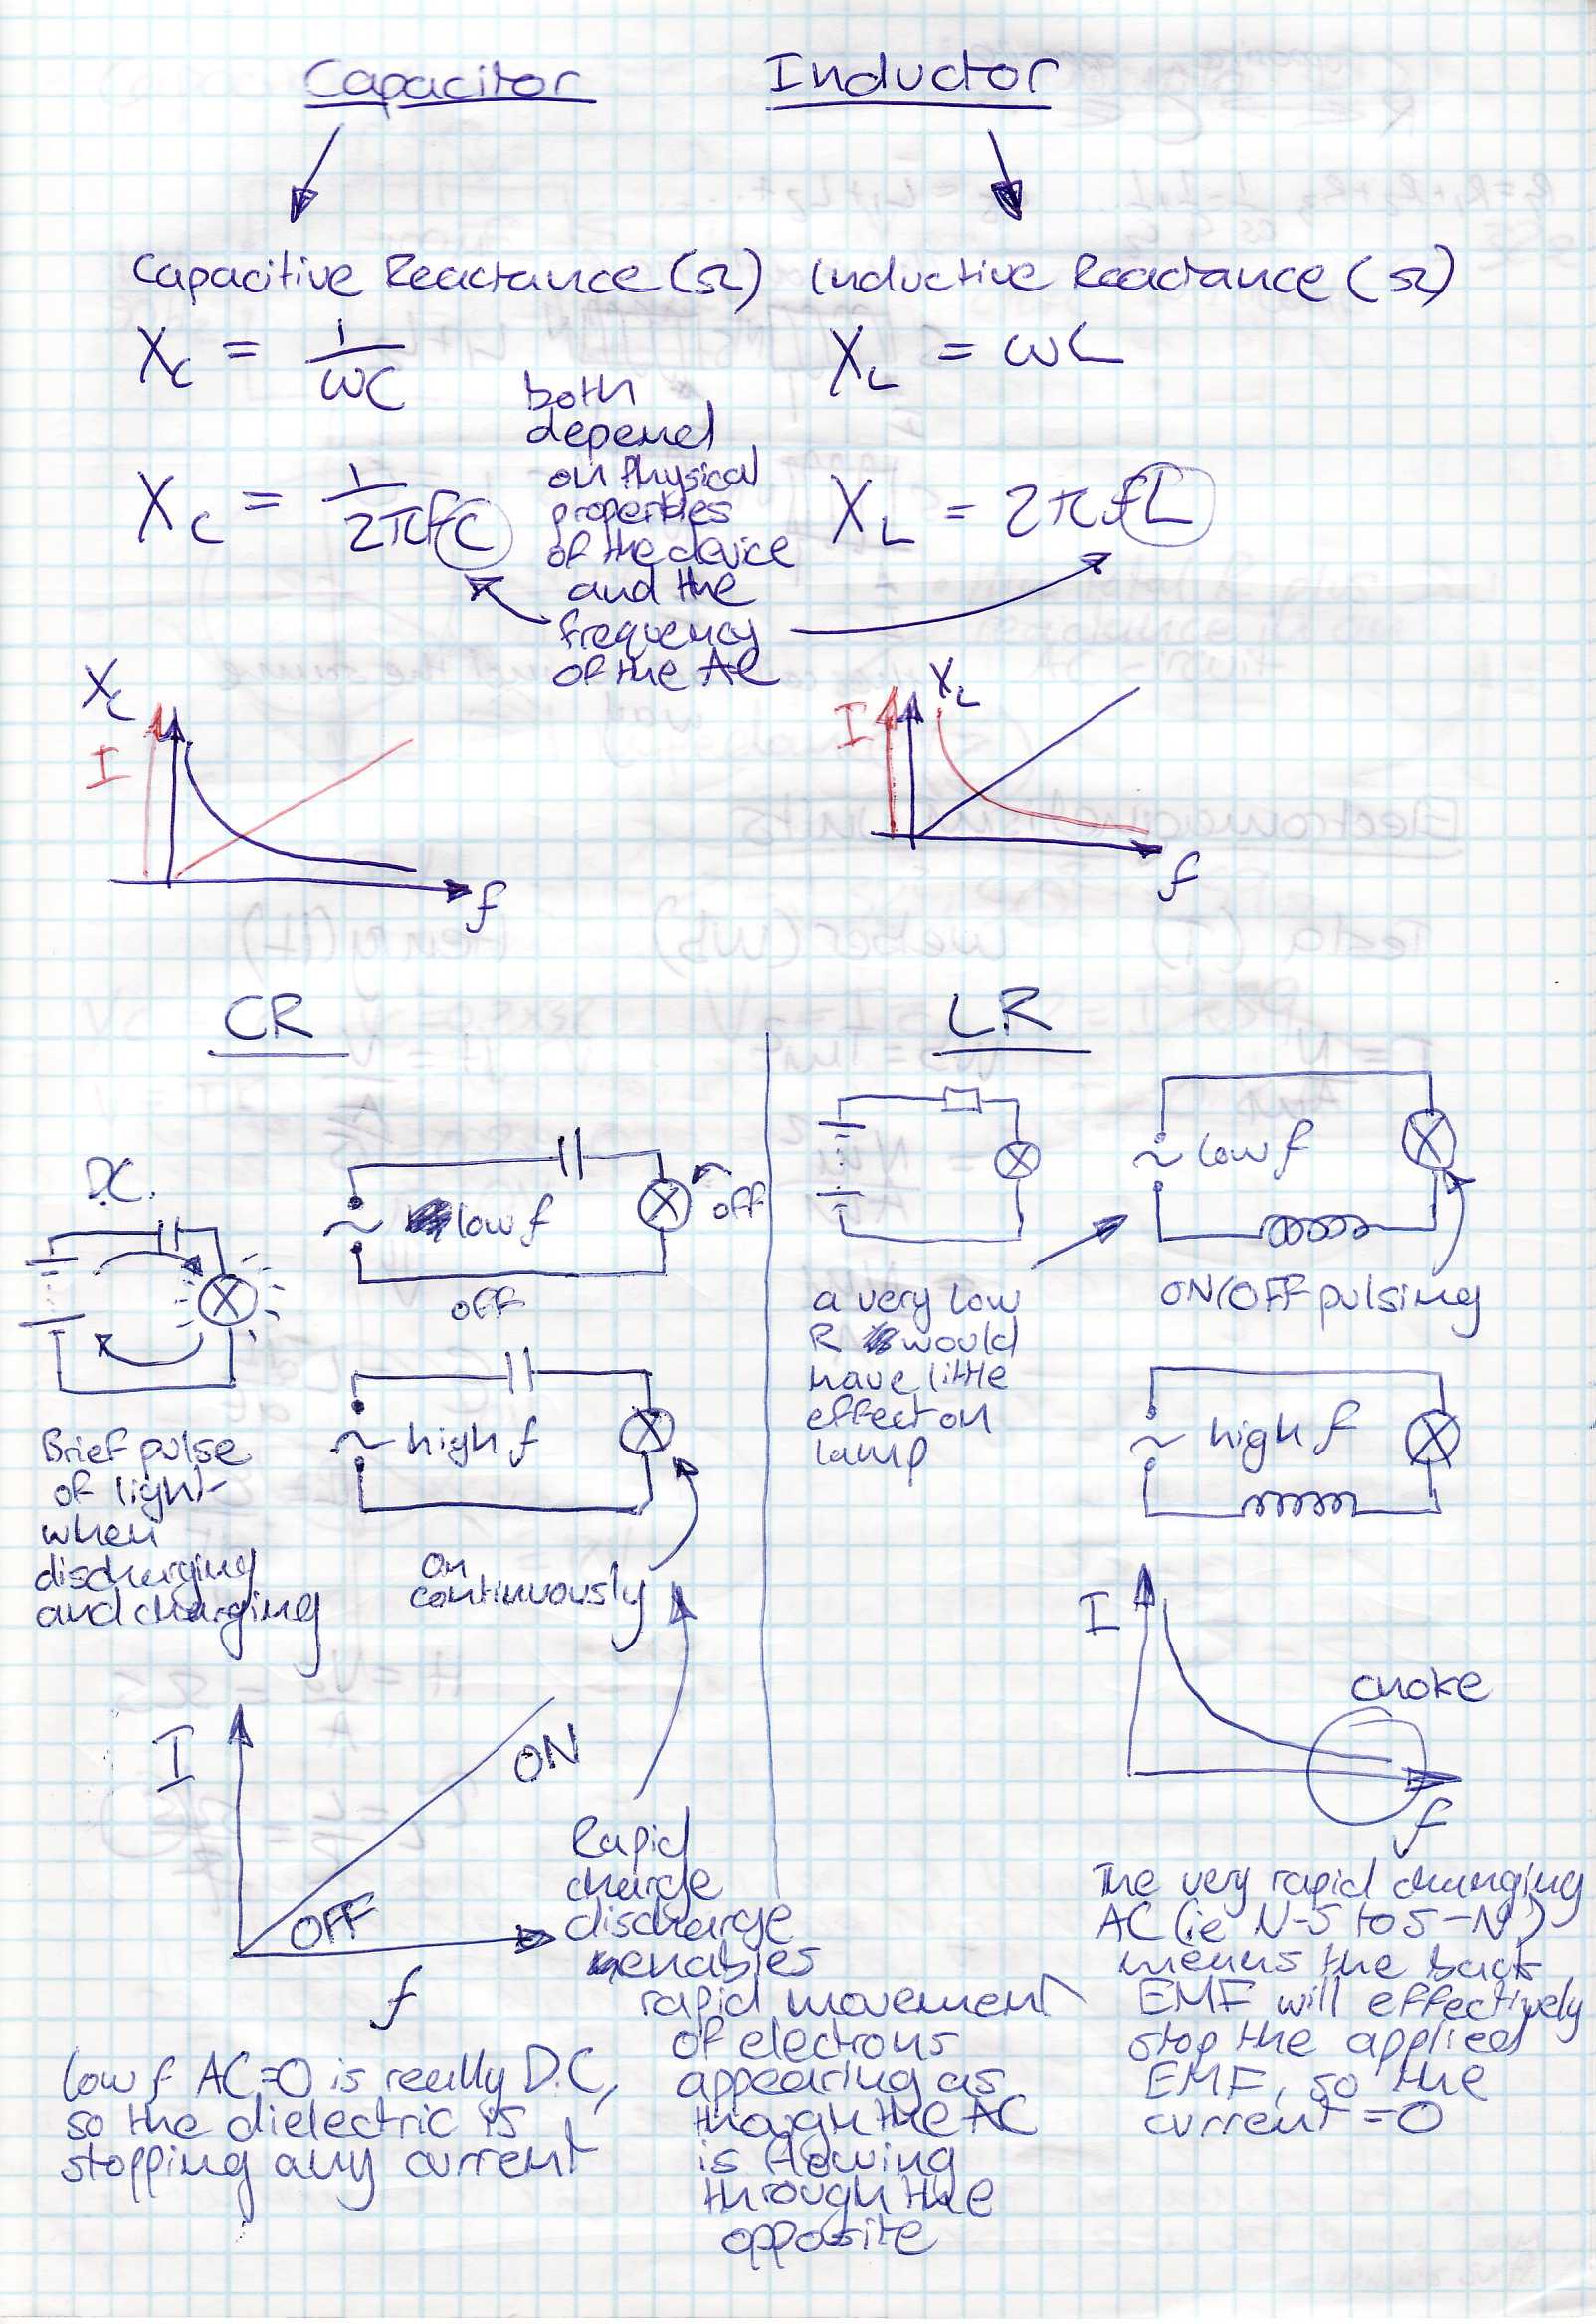 Capacitor
Inductor
Capacitive Reactance (Ω)
Inductive Reactance (Ω)
X_C = 1/ωC
X_L = ωL
both
depend
on Physical
properties
of the device
and the
frequency
of the AC
X_C = 1/2πfC
X_L = 2πfL
X_C
I
f
I
X_L
f
CR
LR
D.C.
Brief pulse
of light
when
discharging
and charging
~ low f
off
OFF
~ high f
on
continuously
I
ON
OFF
f
low f AC=0 is really D.C,
so the dielectric is
stopping any current
Rapid
charge
discharge
enables
rapid movement
of electrons
appearing as
though the AC
is flowing
through the
opposite
a very low
R would
have little
effect on
lamp
~ low f
ON/OFF pulsing
~ high f
I
choke
f
The very rapid changing
AC (ie N-S to S-N)
means the back
EMF will effectively
stop the applied
EMF, so the
current = 0